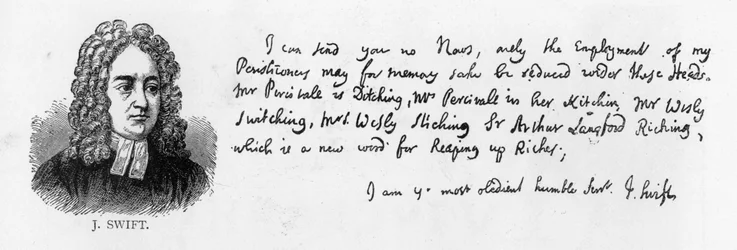 I can send you no News, onely the Employment of my
Parishioners may for memory sake be reduced under these Heads.
Mr Percivale is Ditching, Mrs Percivale in her Kitchin, Mr Wesly
Switching, Mrs Wesly Stiching Sr Arthur Langford Riching,
which is a new word for Heaping up Riches;
I am yr most obedient humble Servt. J: Swift
J. SWIFT.